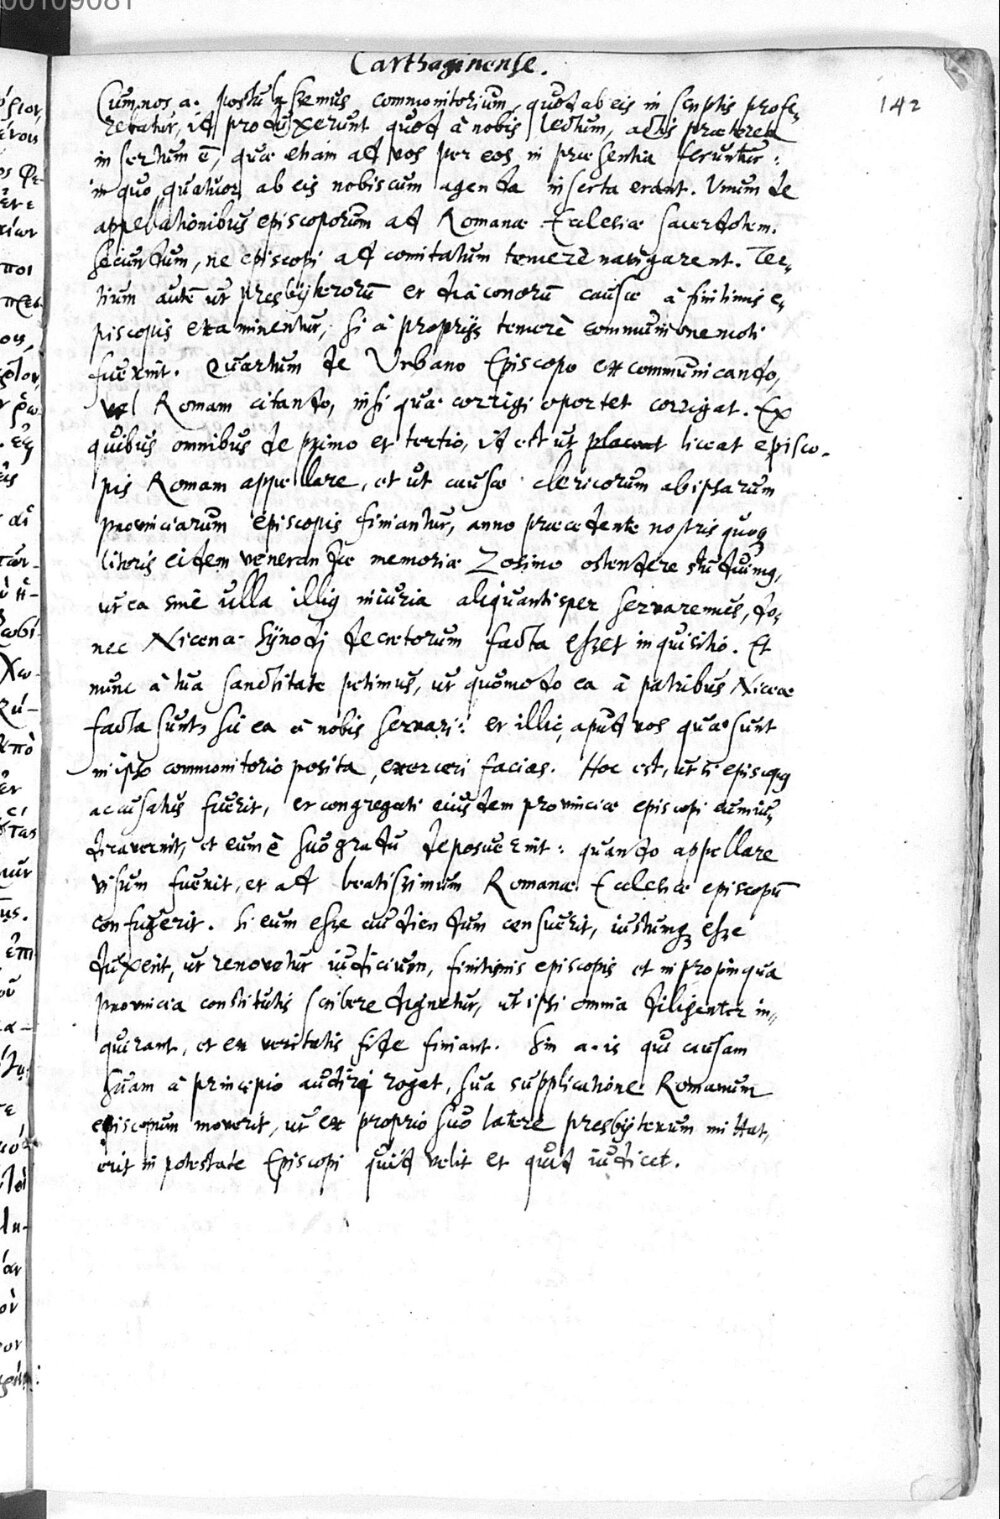 Carthaginense.
142
Cum nos a. postulassemus commonitorium, quod ab eis in scriptis profe-
rebatur, id produxerunt quod à nobis lectum, actis præterea
insertum ē, quæ etiam ad vos per eos in præsentia feruntur:
in quo quatuor ab eis nobiscum agenda inserta erant. Unum de
appellationibus episcoporum ad Romanæ Ecclesiæ sacerdotem.
Secundum, ne episcopi ad comitatum temerè navigarent. Ter-
tium autē ut presbyterorū et diaconorū causæ à finitimis e-
piscopis examinentur, si à proprijs temerè communione moti
fuerint. Quartum de Urbano Episcopo excommunicando,
vel Romam citando, nisi quæ corrigi oportet corrigat. Ex
quibus omnibus de primo et tertio, id est ut placeat liceat episco-
pis Romam appellare, et ut causæ clericorum ab ipsarum
provinciarum episcopis finiantur, anno præcedente nostris quoq
literis eidem venerandæ memoriæ Zosimo ostendere studuimq,
ut ea sine ulla illiq iniuria aliquantisper servaremus, do-
nec Nicenæ Synodi decretorum facta esset inquisitio. Et
nunc à tua sanctitate petimus, ut quomodo ea à patribus Niceæ
facta sunt, sic ea à nobis servari: et illic, apud vos quæ sunt
in ipso commonitorio posita, exerceri facias. Hoc est, ut si episcopq
accusatus fuerit, et congregati eiusdem provinciæ episcopi eum iu-
dicaverint, et eum è suo gradu deposuerint: quando appellare
visum fuerit, et ad beatissimum Romanæ Ecclesiæ episcopū
confugerit. Si eum esse audiendum censuerit, iustumq esse
duxerit, ut renovetur iudicium, finitimis episcopis et in propinqua
provincia constitutis scribere dignetur, ut ipsi omnia diligenter in-
quirant, et ex veritatis fide finiant. Sin a. is qui causam
suam à principio audiri rogat, sua supplicatione Romanum
episcopum moverit, ut ex proprio suo latere presbyterum mittat,
erit in potestate Episcopi quid velit et quid iudicet.